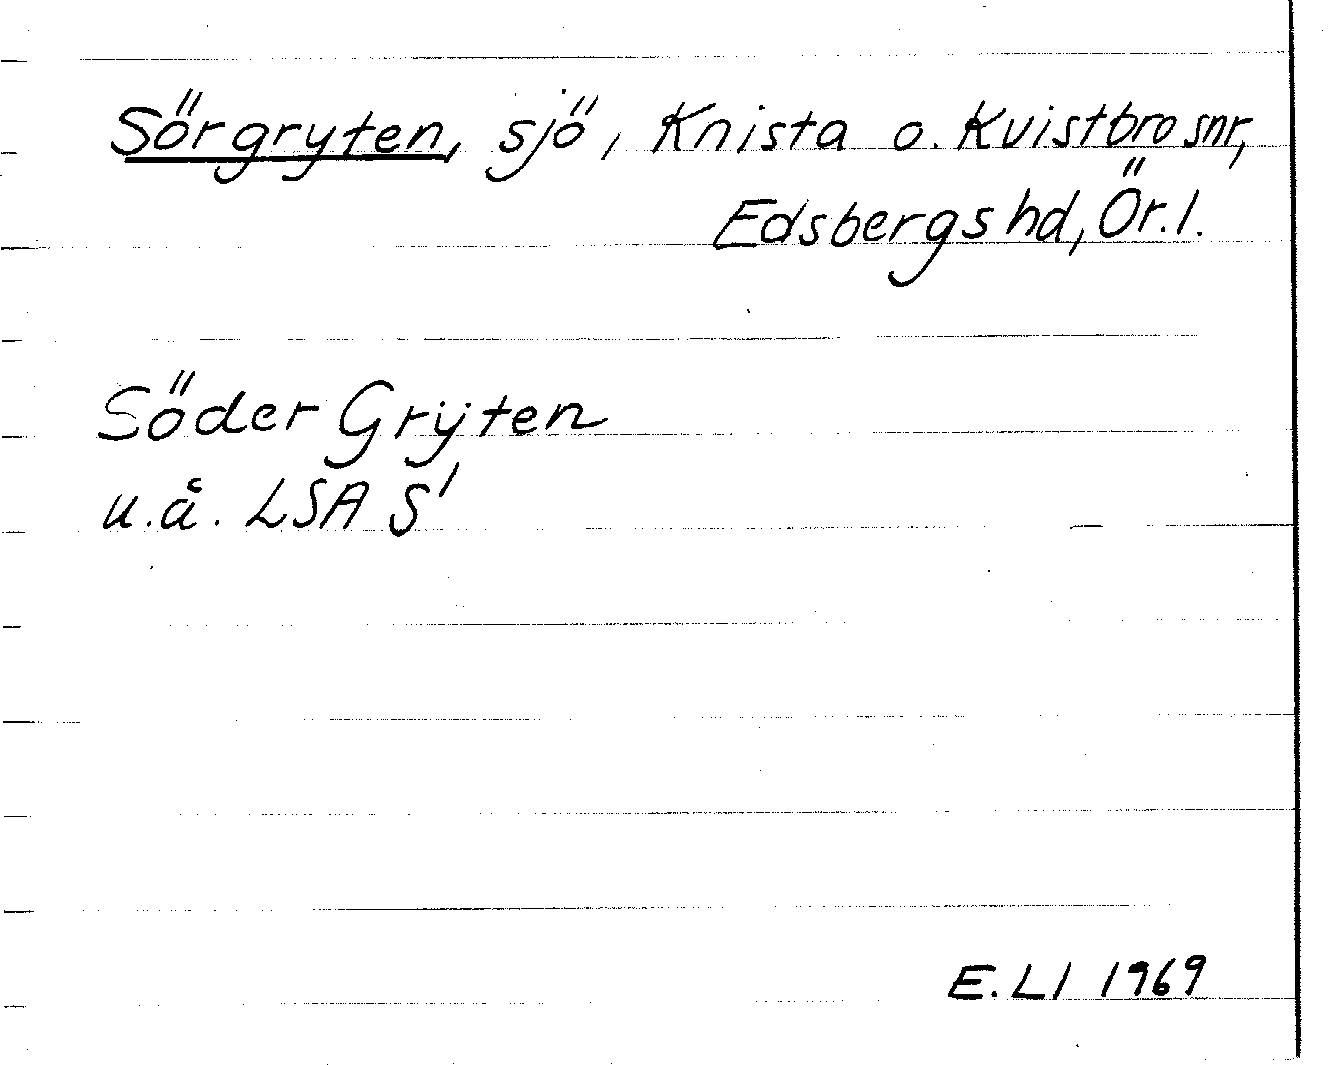 Sörgryten, sjö, Knista o. Kvistbro snr,
Edsbergs hd, Ör. l.
Söder Grÿten
u.å. LSA S'
E. LI 1969